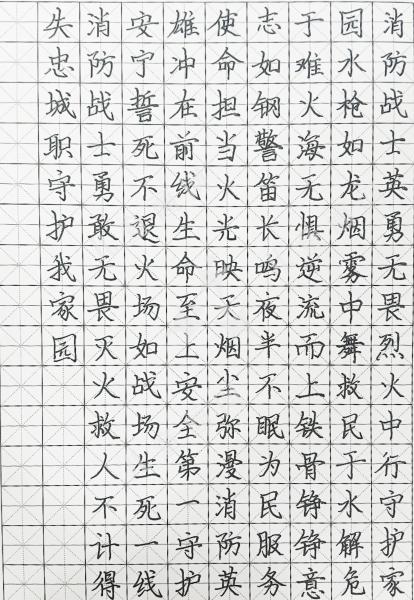 消防战士英勇无畏烈火中行守护家
园水枪如龙烟雾中舞救民于水解危
于难火海无惧逆流而上铁骨铮铮意
志如钢警笛长鸣夜半不眠为民服务
使命担当火光映天烟尘弥漫消防英
雄冲在前线生命至上安全第一守护
安宁誓死不退火场如战场生死一线
消防战士勇敢无畏灭火救人不计得
失忠城职守护我家园